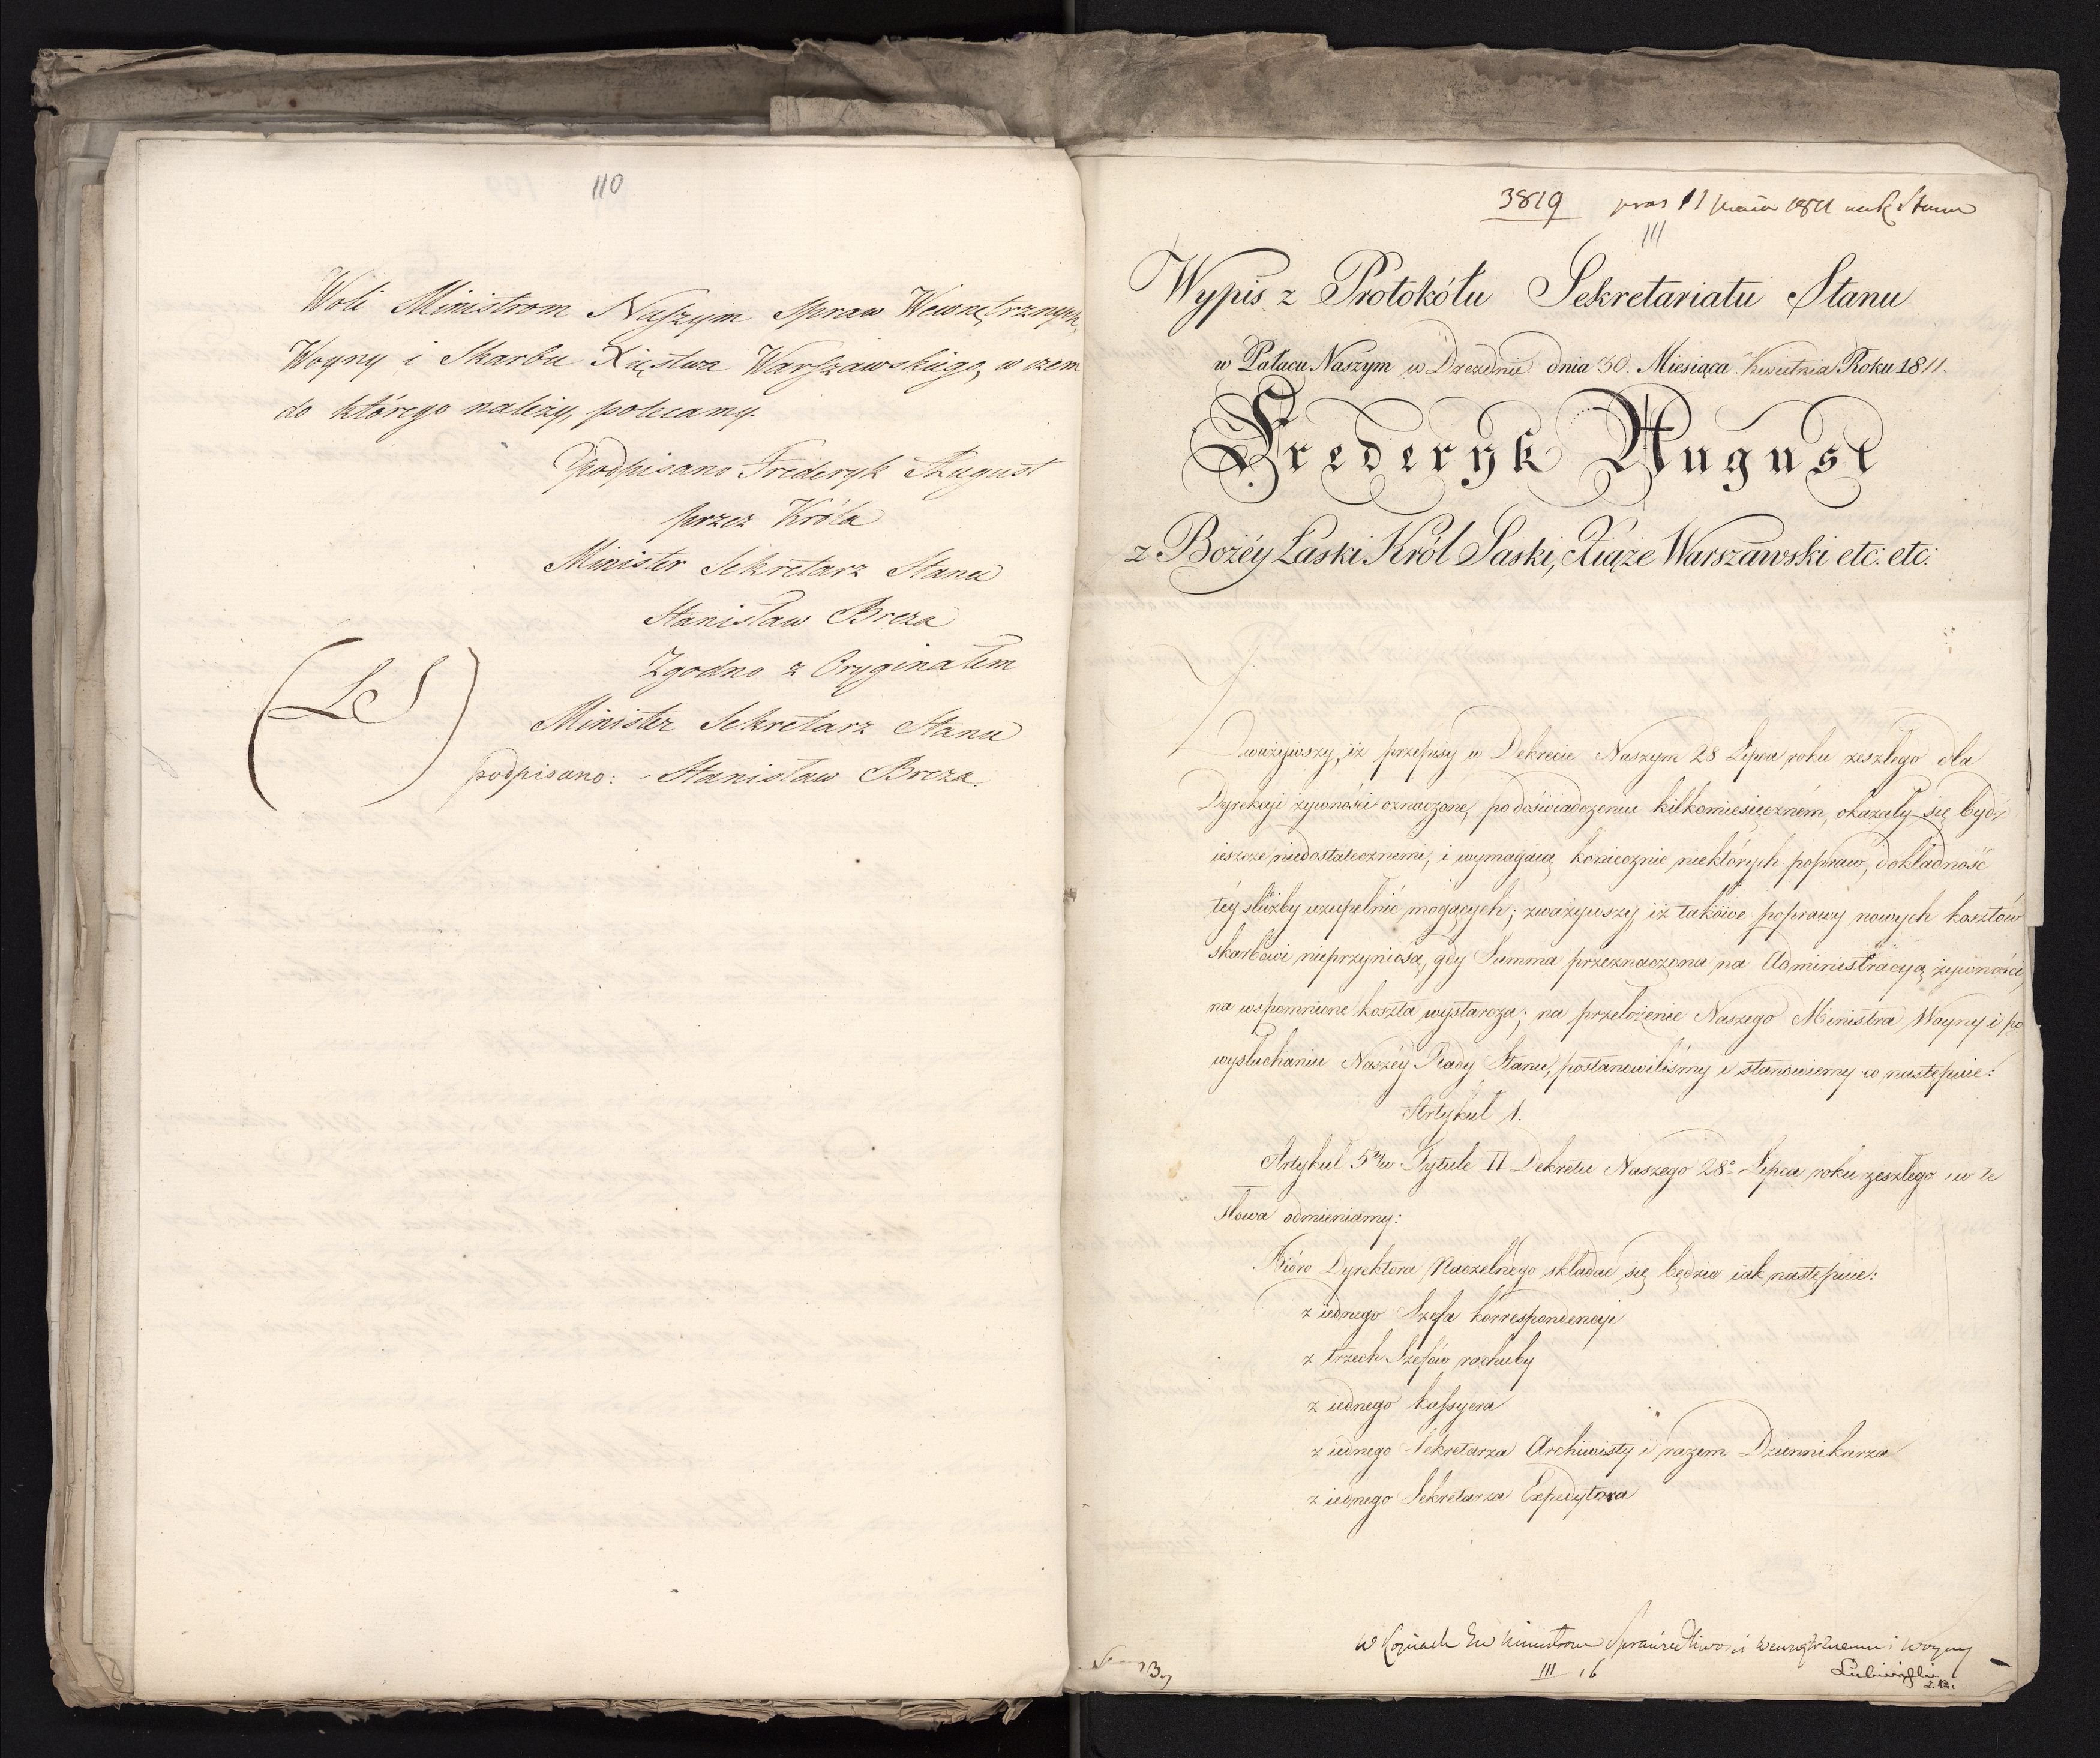 110
Woli Ministrom Naszym Spraw Wewnętrznych,
Woyny i Skarbu Xięstwa Warszawskiego, w czem
do którego należy, polecamy.
Podpisano Frederyk August
przez Króla
Minister Sekretarz Stanu
Stanisław Breza
Zgodno z Oryginałem
(LS)
Minister Sekretarz Stanu
podpisano: - Stanisław Breza.
3819 pras 11 1811
111
Wypis z Protokółu Sekretariatu Stanu
w Pałacu Naszym w Dreznie dnia 30. Miesiąca Kwietnia Roku 1811.
Frederyk August
z Bożéy Łaski Król Saski, Xiąże Warszawski etc: etc:
Zważywszy, iż przepisy w Dekrecie Naszym 28 Lipca roku zeszłego dla
Dyrekcyi żywności oznaczone, po doświadczeniu kilkomiesięcznem, okazały się bydź
ieszcze niedostatecznemi, i wymagaią koniecznie niektórych popraw, dokładność
téy służby uzupełnić mogących; zważywszy, iż takowe poprawy nowych kosztów
skarbowi nieprzyniosą, gdy Summa przeznaczona na Administracyą żywności,
na wspomnione koszta wystarcza; na przełożenie Naszego Ministra Woyny i po
wysłuchaniu Naszéy Rady Stanu, postanowiliśmy i stanowiemy co następuie:
Artykuł 1.
Artykuł 5ty w Tytule II Dekretu Naszego 28o Lipca roku zeszłego w te
słowa odmieniamy:
Bióro Dyrektora Naczelnego składać się będzie iak następuie:
z iednego Szefa korrespondencyi
z trzech Szefów rachuby
z iednego kassyera
z iednego Sekretarza Archiwisty i razem Dziennikarza
z iednego Sekretarza Expedytora
w Kopiach Ministrom Sprawiedliwości Wewnętrznemu i Woyny
III 16 Lubieński